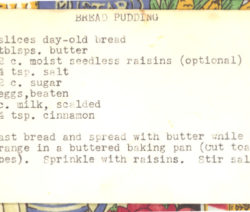 BREAD PUDDING
slices day-old bread
tblsps. butter
c. moist seedless raisins (optional)
tsp. salt
c. sugar
eggs,beaten
c. milk, scalded
tsp. cinnamon
ast bread and spread with butter while
range in a buttered baking pan (cut toa
bes). Sprinkle with raisins. Stir sal